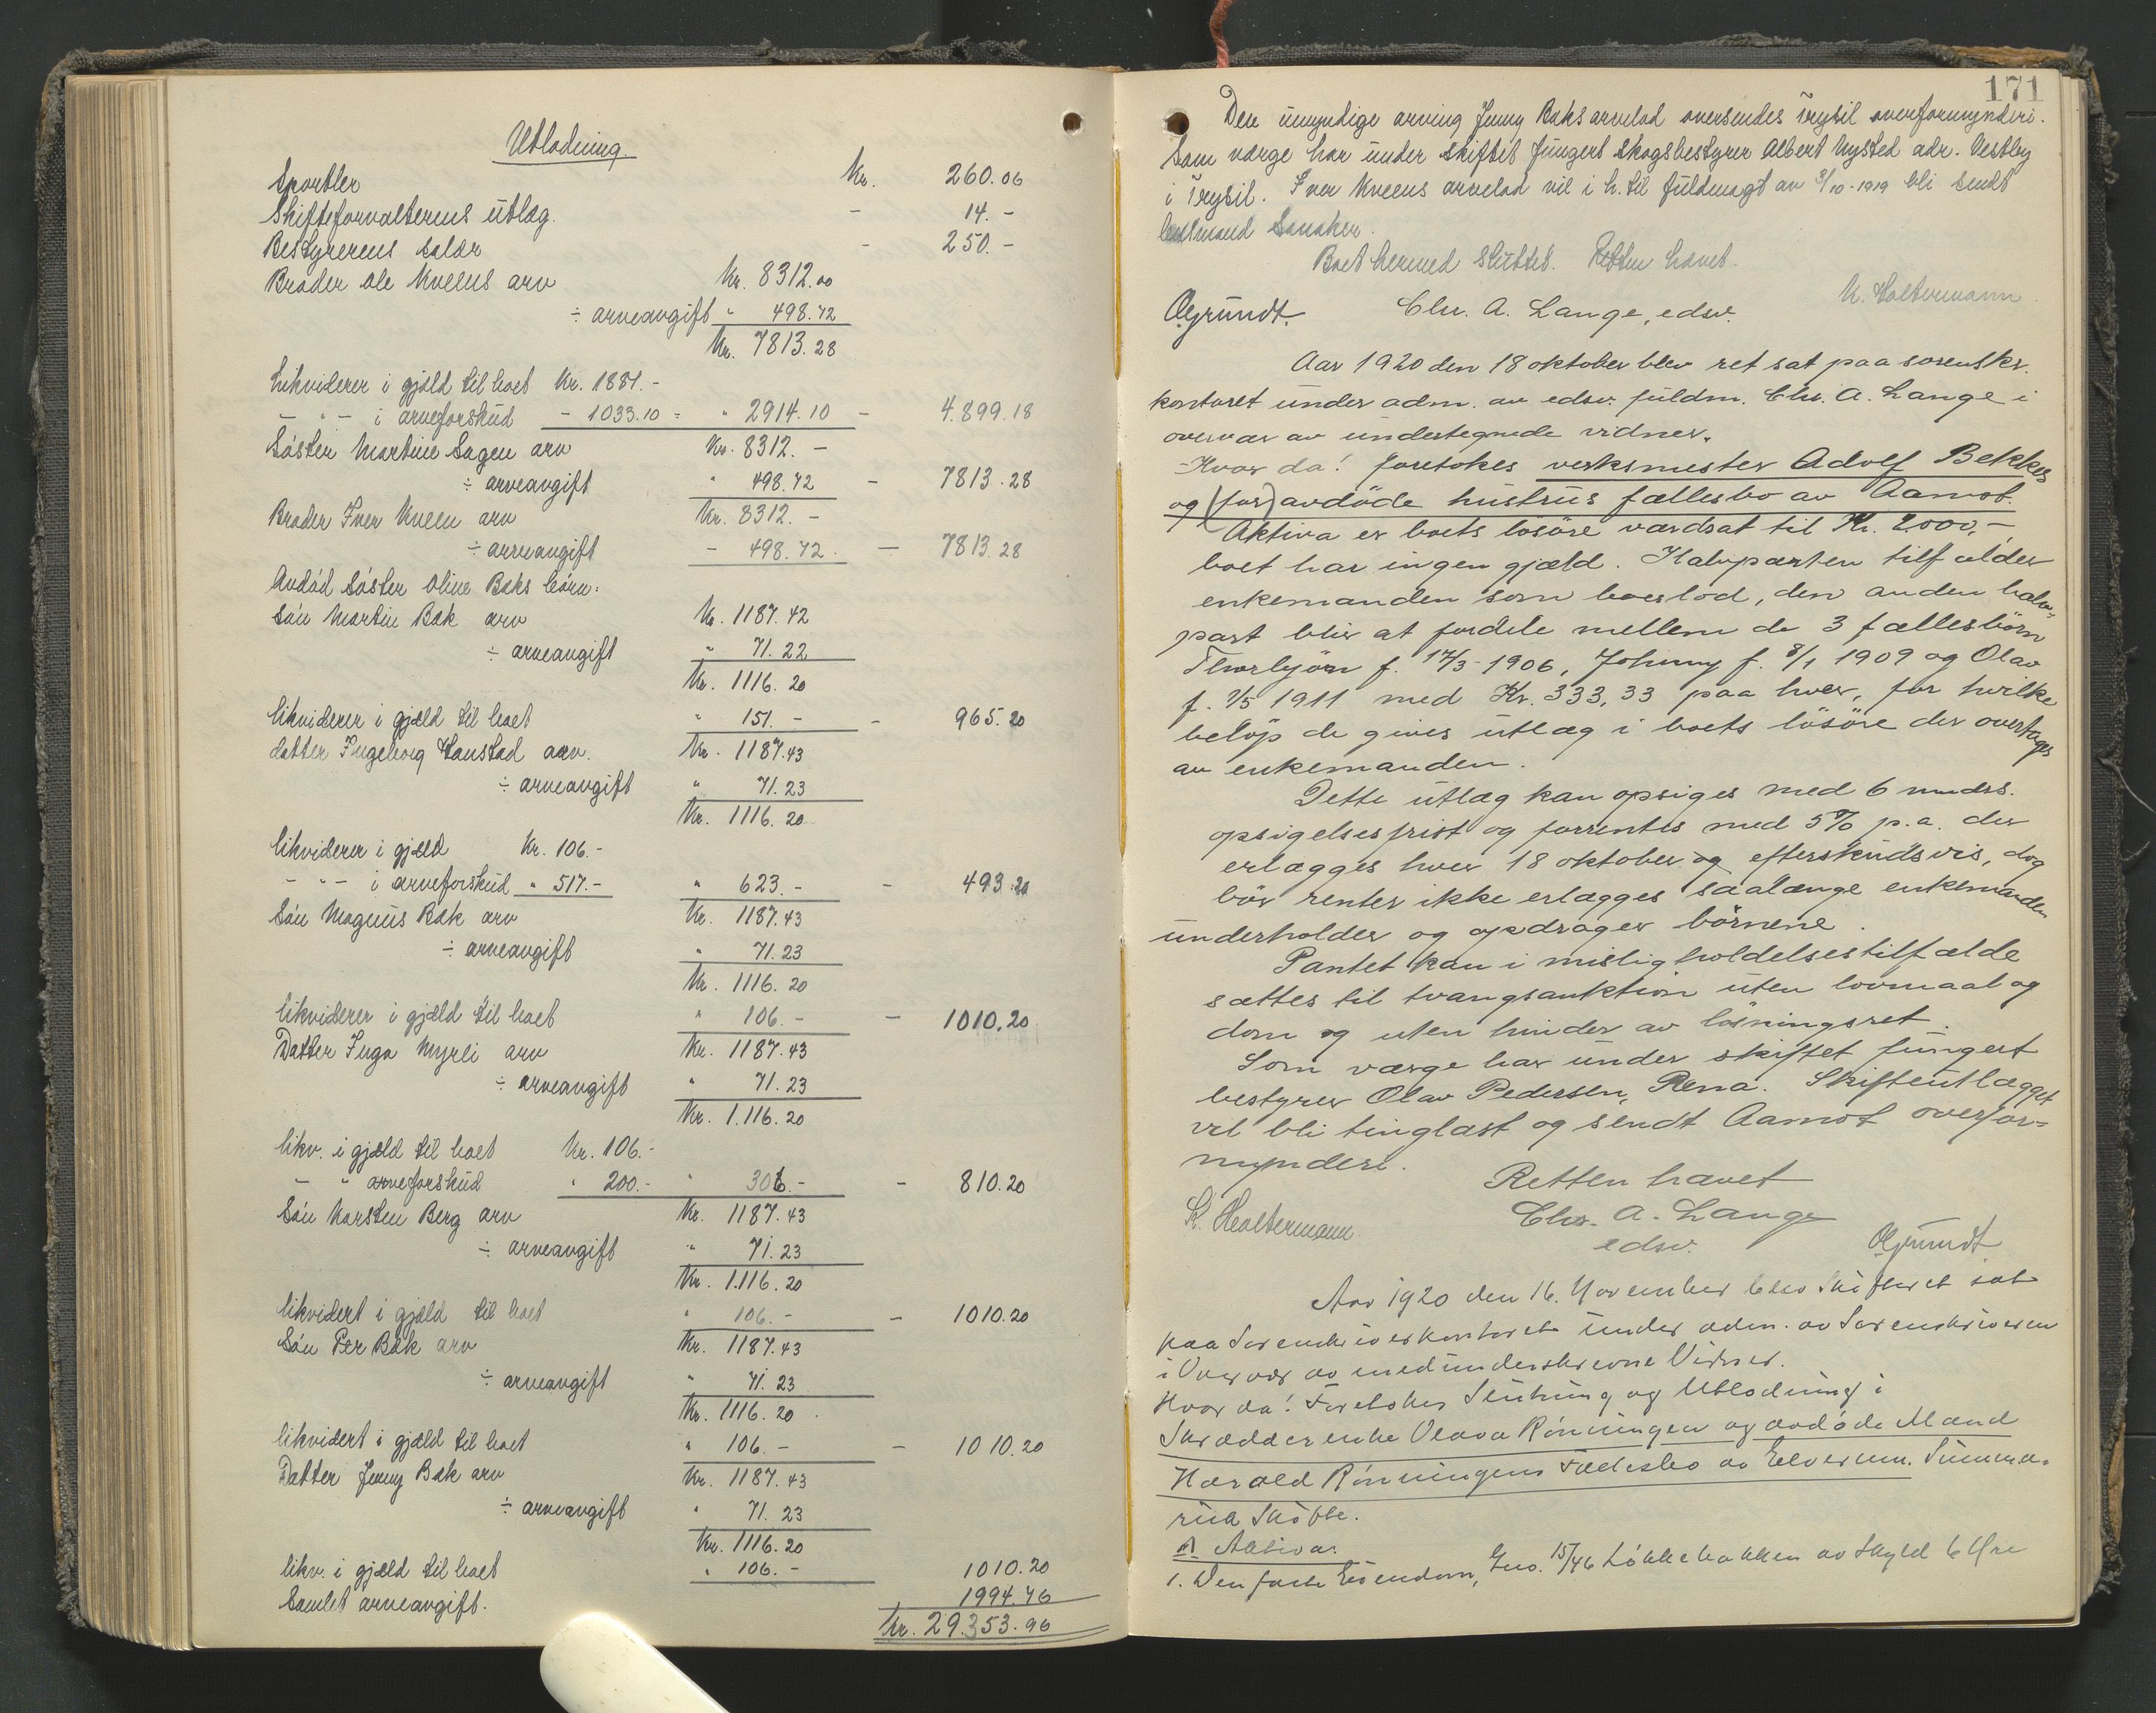 Utlodning.
Sportler Kr. 260.06
Skifteforvalterens utlæg. - 14.-
Bestyrerens salær - 250.-
Broder Ole Kveens arv Kr. 8312.00
÷ arveavgift " 498.72
Kr. 7813.28
Likviderer i gjæld til boet Kr. 1881.-
- " - i arveforskud - 1033.10 = " 2914.10 - 4.899.18
Søster Martine Sagen arv Kr. 8312.-
÷ arveavgift " 498.72 - 7813.28
Broder Iver Kveen arv Kr. 8312.-
÷ arveavgift - 498.72. - 7813.28
Avdød søster Oline Baks børn:
Søn Martin Bak arv Kr. 1187.42
÷ arveavgift " 71.22
Kr. 1116.20
likviderer i gjæld til boet " 151.- - 965.20
datter Ingeborg Haustad arv. Kr. 1187.43
÷ arveavgift " 71.23
Kr. 1116.20
likviderer i gjæld Kr. 106.-
- " - i arveforskud " 517.- " 623.- - 493.20
Søn Magnus Bak arv Kr. 1187.43
÷ arveavgift " 71.23
Kr. 1116.20
likviderer i gjæld til boet " 106.- - 1010.20
Datter Inga Myrli arv Kr. 1187.43
÷ arveavgift " 71.23
Kr. 1.116.20
likv. i gjæld til boet Kr. 106.-
- " arveforskud " 200.- " 306.- - 810.20
Søn Karsten Berg arv Kr. 1187.43
÷ arveavgift " 71.23
Kr. 1.116.20
likvidert i gjæld til boet " 106.- - 1010.20
Søn Per Bak arv Kr. 1187.43
÷ arveavgift " 71.23
Kr. 1116.20
likvidert i gjæld til boet " 106.- - 1010.20
Datter Jenny Bak arv Kr. 1187.43
÷ arveavgift " 71.23
Kr. 1116.20
likv. i gjæld til boet " 106.- 1010.20
Samlet arveavgift. 1994.76
Kr. 29.353.96
171
Den umyndige arving Jenny Baks arvelod oversendes Trysil overformynderi.
Som værge har under skiftet fungert skogsbestyrer Albert Nysted adr. Vestby
i Trysil. Iver Kveens arvelod vil i h. til fuldmagt av 3/10-1919 bli sendt
lensmand Sanaker.
Boet hermed sluttet. Retten hævet.
K. Holtermann
OGrundt. Chr. A. Lange, edsv.
Aar 1920 den 18 oktober blev ret sat paa sorenskr.
kontoret under adm. av edsv. fuldm. Chr. A. Lange i
overvær av undertegnede vidner.
Hvor da! foretokes verksmester Adolf Bekkes
og (for) avdøde hustrus fællesbo av Aamot.
Aktiva er boets løsøre værdsat til Kr. 2.000,-,
boet har ingen gjæld. Halvparten tilfalder
enkemanden som boeslod, den anden halv-
part blir at fordele mellem de 3 fællesbörn
Thorbjörn f. 17/3-1906, Johnny f. 8/1 1909 og Olav
f. 7/5 1911 med Kr. 333,33 paa hver, for hvilke
belöp de gives utlæg i boets lösöre der overtages
av enkemanden.
Dette utlæg kan opsiges med 6 mndrs.
opsigelsesfrist og forrentes med 5% p.a. der
erlægges hver 18 oktober og efterskudsvis, dog
bör renter ikke erlægges saalænge enkemanden
underholder og opdrager börnene.
Pantet kan i misligholdelsestilfælde
sættes til tvangsauktion uten lovmaal og
dom og uten hinder av løsningsret.
Som værge har under skiftet fungert
bestyrer Olav Pedersen, Rena. Skifteutlægget
vil bli tinglæst og sendt Aamot overfor-
mynderi.
Retten hævet
K. Holtermann. Chr. A. Lange
edsv. OGrundt
Aar 1920 den 16. November blev Skifteret sat
paa Sorenskriverkontoret under adm. av Sorenskriveren
i Overvær av medunderskrevne Vidner.
Hvor da! Foretokes Slutning og Utlodning i
Skrædderenke Olava Rønningen og avdøde Mand
Harald Rønningens Fællesbo av Elverum. Summa-
risk Skifte.
A Aktiva.
1. Den faste Eiendom, Gno. 15/46 Løkkebakken av Skyld 6 Øre